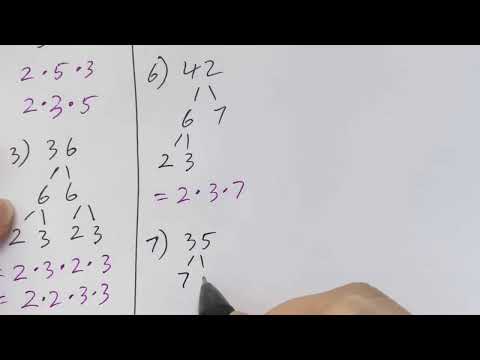 2·5·3
2·3·5
3) 36
6 6
2 3 2 3
= 2·3·2·3
= 2·2·3·3
6) 42
6 7
2 3
= 2·3·7
7) 35
7